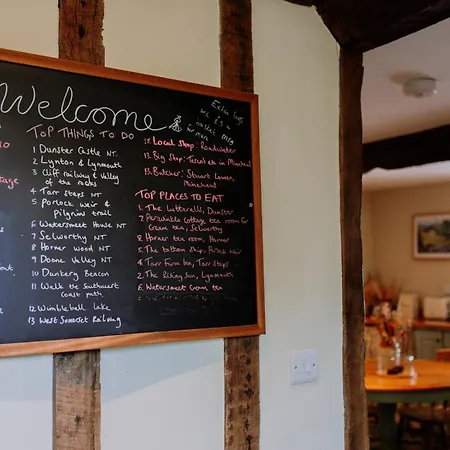 Welcome
Top Things to do
1 Dunster Castle NT
2 Lynton & Lynmouth
3 Cliff railway & Valley
of the rocks
4 Tarr Steps NT
5 Porlock weir &
Pilgrims trail
6 Watersmeet House NT
7 Selworthy NT
8 Horner Wood NT
9 Doone Valley NT
10 Dunkery Beacon
11 Walk the Southwest
coast path
12 Wimbleball lake
13 West Somerset Railway
for more
Local Shop: Roadwater
13. Big Shop: Tesco etc in Minehead
13. Butcher: Stuart Lowen,
Minehead
Top Places to Eat
1. The Luttrells, Dunster
2. Periwinkle Cottage tea room Cr
Green tea, Selworthy
3. Horner tea room, Horner
3. The bottom ship, Porlock Weir
4. Tarr Farm Inn, Tarr Steps
2. The Rising Sun, Lynmouth
6 Watersmeet Cream tea